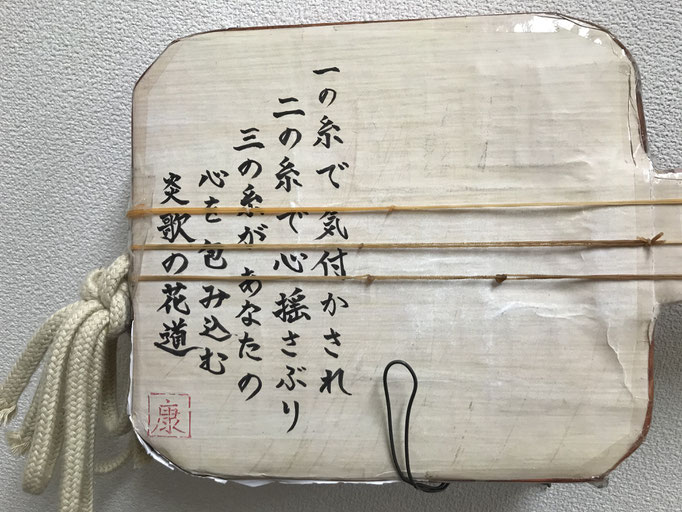 一の糸で気付かされ
二の糸で心揺さぶり
三の糸があなたの
心を包み込む
炎歌の花道
康